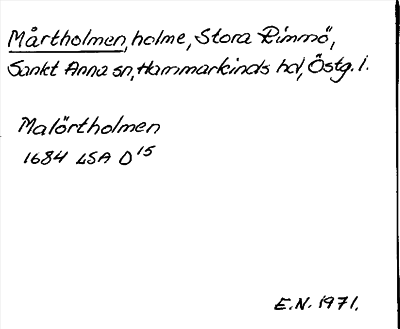 Mårtholmen, holme, Stora Rimmö,
Sankt Anna sn, Hammarkinds hd, Östg. l.
Malörtholmen
1684 LSA D 15
E.N. 1971.